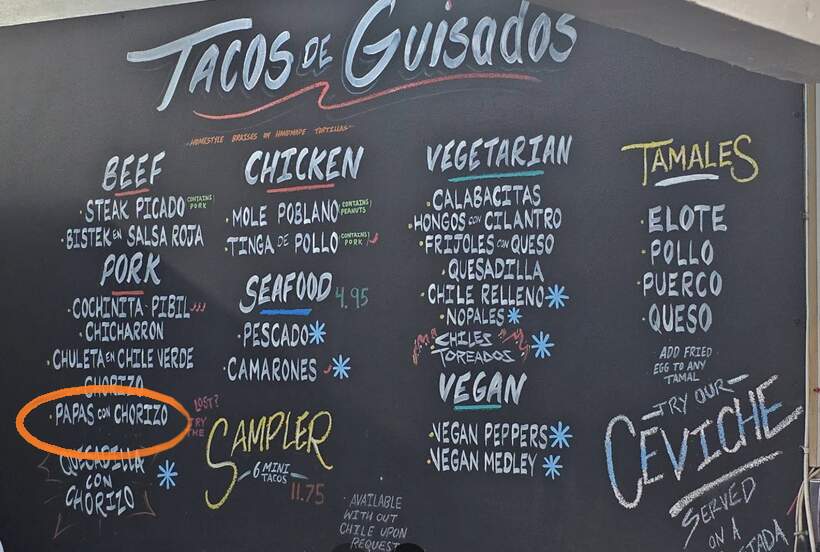 TACOS DE GUISADOS
HOMESTYLE BRAISES ON HANDMADE TORTILLAS
BEEF
STEAK PICADO CONTAINS PORK
BISTEK EN SALSA ROJA
PORK
COCHINITA PIBIL
CHICHARRON
CHULETA EN CHILE VERDE
CHORIZO
PAPAS CON CHORIZO
QUESADILLA
CON
CHORIZO
CHICKEN
MOLE POBLANO CONTAINS PEANUTS
TINGA DE POLLO CONTAINS PORK
SEAFOOD 4.95
PESCADO
CAMARONES
LOST?
TRY
THE
SAMPLER
6 MINI
TACOS
11.75
VEGETARIAN
CALABACITAS
HONGOS CON CILANTRO
FRIJOLES CON QUESO
QUESADILLA
CHILE RELLENO
NOPALES
CHILES
TOREADOS
VEGAN
VEGAN PEPPERS
VEGAN MEDLEY
AVAILABLE
WITH OUT
CHILE UPON
REQUEST
TAMALES
ELOTE
POLLO
PUERCO
QUESO
ADD FRIED
EGG TO ANY
TAMAL
TRY OUR
CEVICHE
SERVED
ON A